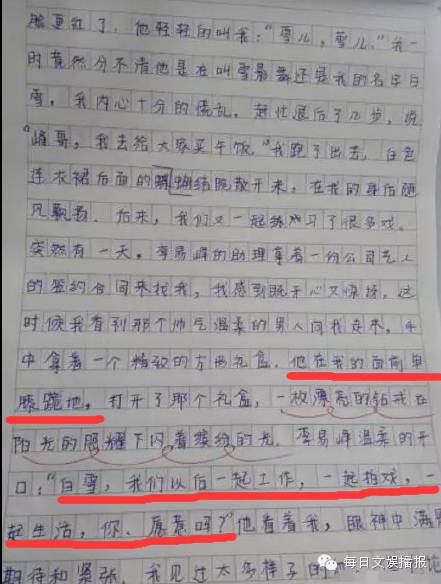 脸更红了，他轻轻的叫我："雪儿，雪儿。"我一
时竟然分不清他是在叫雪最舞还是我的名字白
雪，我内心十分的慌乱，赶忙退后了几步，说
"峰哥，我去给大家买午饭。"我跑了出去，白色
连衣裙后面的蝴蝶结散开来，在我的身后随
风飘扬。后来，我们又一起练习了很多戏。
突然有一天，李易峰的助理拿着一份公司艺人
的签约合同来找我，我感到既开心又惊讶，这
时候我看到那个帅气温柔的男人向我走来，手
中拿着一个精致的方形礼盒，他在我的面前单
膝跪地，打开了那个礼盒，一枚漂亮的钻戒在
阳光的照耀下闪着缤纷的光。李易峰温柔的开
口："白雪，我们以后一起工作，一起拍戏，一
起生活，你，愿意吗？"他看着我，眼神中满
期待和紧张，我见过太多样子的
每日文娱播报